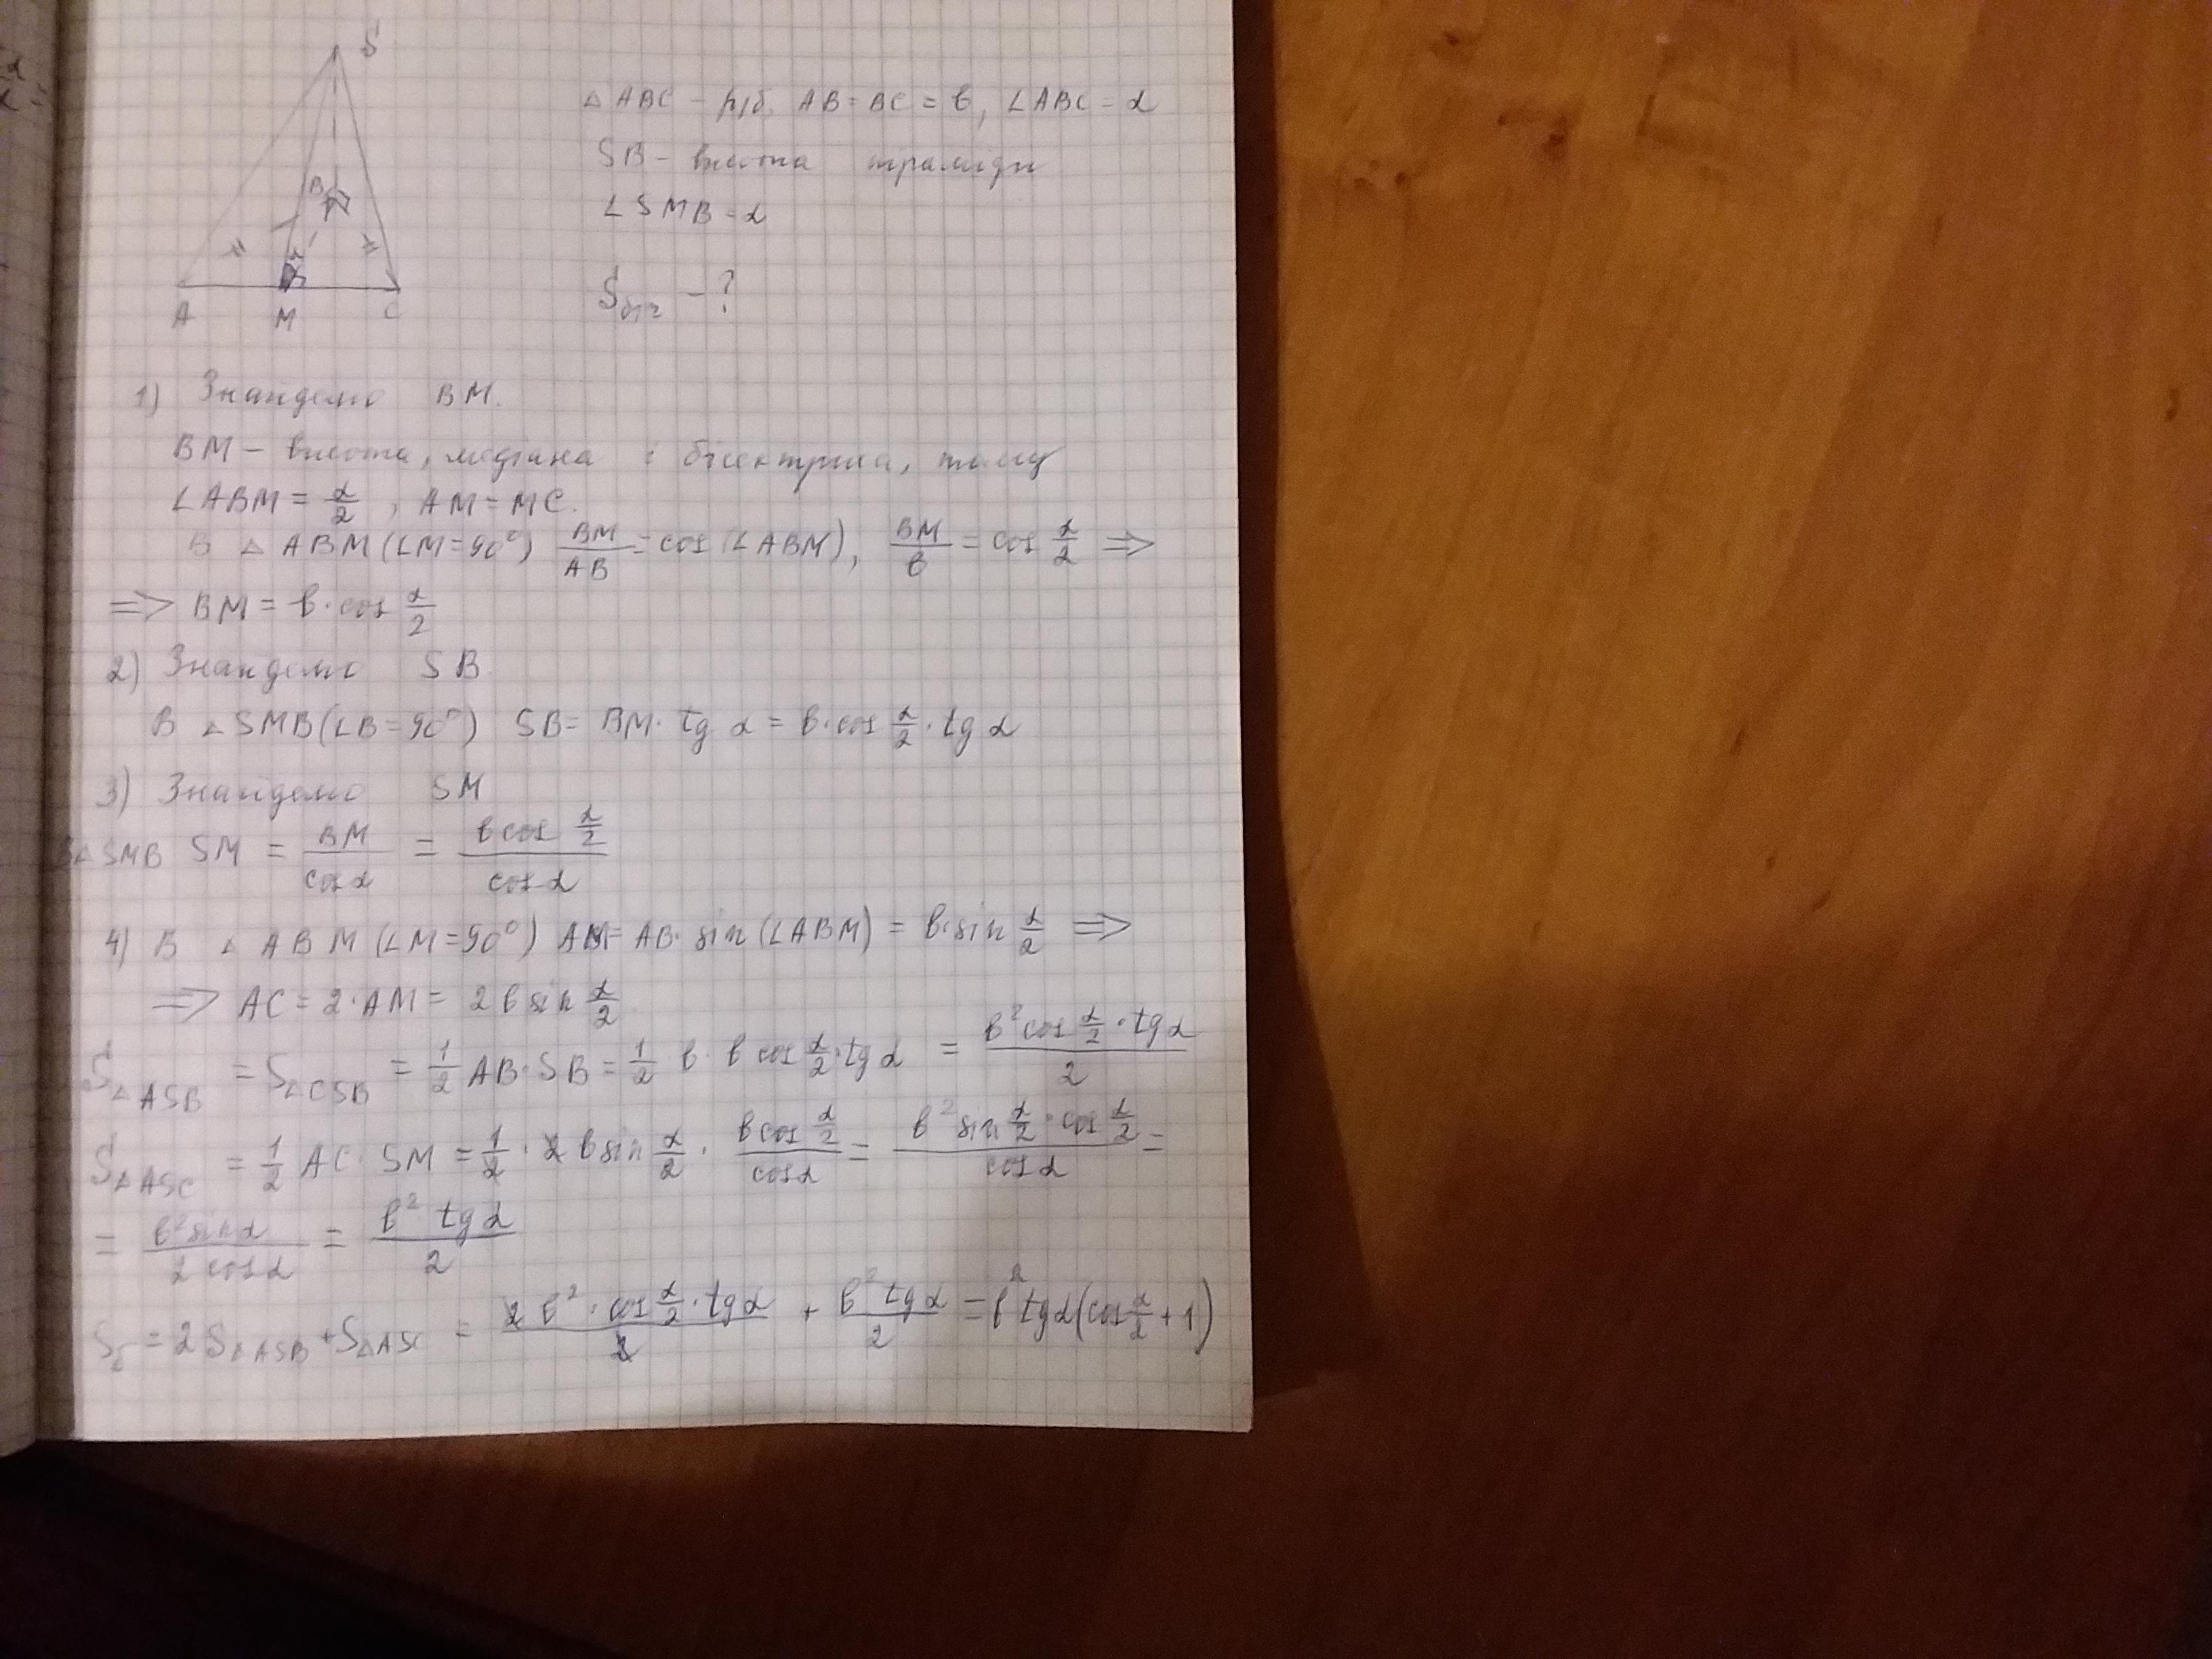 S
B
A M C
△ABC - р/б, AB = BC = b, ∠ABC = α
SB - висота піраміди
∠SMB - α
Sбіч - ?
1) Знайдемо BM.
BM - висота, медіана і бісектриса, тому
∠ABM = α/2, AM = MC.
В △ABM (∠M = 90°) BM/AB = cos(∠ABM), BM/b = cos α/2 ⇒
⇒ BM = b · cos α/2
2) Знайдемо SB
В △SMB (∠B = 90°) SB = BM · tg α = b · cos α/2 · tg α
3) Знайдемо SM
В △SMB SM = BM/cos α = b cos α/2 / cos α
4) В △ABM (∠M = 90°) AM = AB · sin(∠ABM) = b · sin α/2 ⇒
⇒ AC = 2 · AM = 2 b sin α/2
S△ASB = S△CSB = 1/2 AB · SB = 1/2 b · b cos α/2 · tg α = b² cos α/2 · tg α / 2
S△ASC = 1/2 AC · SM = 1/2 · 2 b sin α/2 · b cos α/2 / cos α = b² sin α/2 · cos α/2 / cos α =
= b² sin α / 2 cos α = b² tg α / 2
Sб = 2 S△ASB + S△ASC = 2 b² · cos α/2 · tg α / 2 + b² tg α / 2 = b² tg α (cos α/2 + 1)